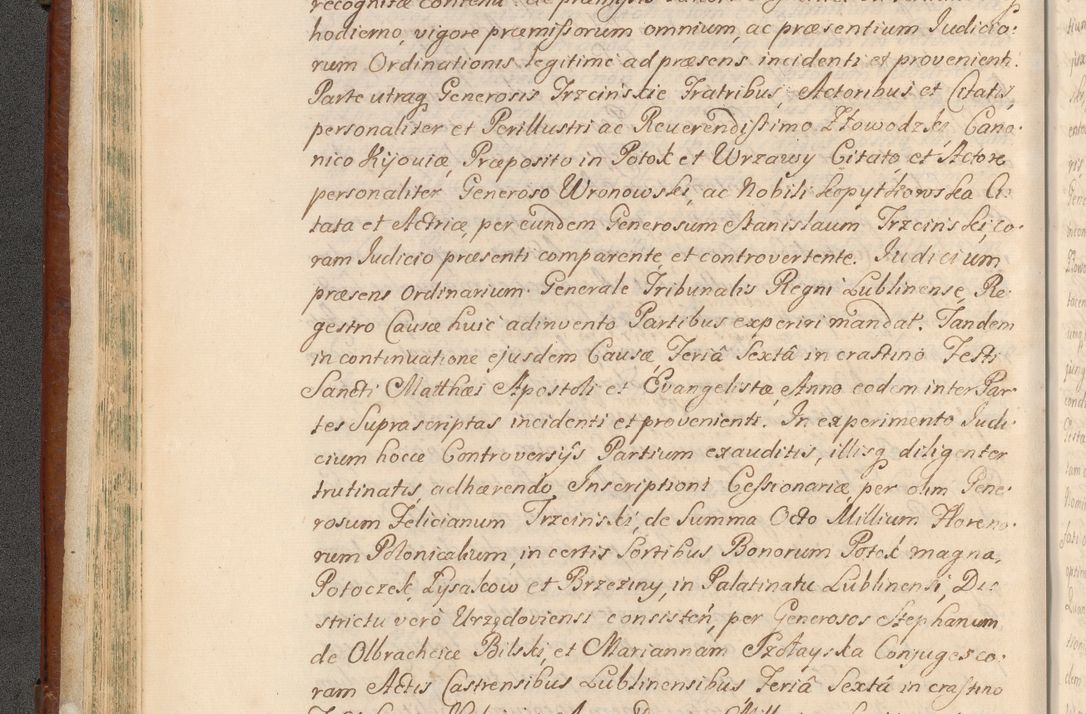 hodierno, vigore præmissorum omnium, ac præsentium Judicio:
rum Ordinationis legitime ad præsens incidenti et provenienti.
Parte utraq Generosis Trzcinskie Fratribus, Actoribus et Citatis,
personaliter et Perillustri ac Reverendissimo Złowodzki Cano:
nico Kijoviæ, Præposito in Potok et Wrzawy Citato et Actore
personaliter Generoso Wronowski, ac Nobili Kopytkowska Ci:
tata et Actrice, per eundem Generosum Stanislaum Trzcinski, co:
ram Judicio præsenti comparente et controvertente. Judicium
præsens Ordinarium Generale Tribunalis Regni Lublinense, Re:
gestro Causæ huic adinvento Partibus experiri mandat. Tandem
in continuatione ejusdem Causæ, Feriâ Sextâ in crastino Festi
Sancti Matthæi Apostoli et Evangelistæ Anno eodem inter Par:
tes Suprascriptas incidenti et provenienti. In experimento Judi:
cium hocce Controversijs Partium exauditis, illisq diligenter
trutinatis, adhærendo Inscriptioni Cessionariæ per olim Gene:
rosum Felicianum Trzcinski, de Summa Octo Millium Floreno:
rum Polonicalium, in certis Sortibus Bonorum Potok magna,
Potoczek, Łysaków et Brzeziny, in Palatinatu Lublinensi, Di:
strictu verò Urzędoviensi consisteń, per Generosos Stephanum
de Olbrachcice Bilski, et Mariannam Pzołayska Conjuges co:
ram Actis Castrensibus Lublinensibus Feriâ Sextâ in crastino